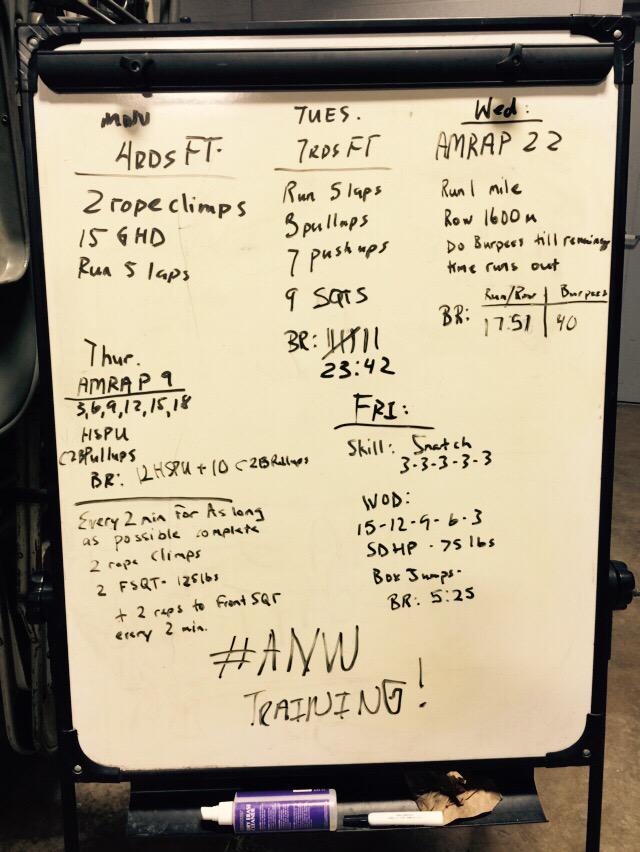 MON
4RDS FT.
2 rope climps
15 GHD
Run 5 laps
TUES.
7RDS FT
Run 5 laps
3 pullups
7 pushups
9 SQTS
BR:
23:42
Wed:
AMRAP 22
Run 1 mile
Row 1600m
Do Burpees till remaining
time runs out
Run/Row Burpees
BR: 17:51 40
Thur.
AMRAP 9
3,6,9,12,15,18
HSPU
C2B Pullups
BR: 12 HSPU + 10 C2B Pullups
Every 2 min For As long
as possible complete
2 rope climps
2 FSQT- 125lbs
+ 2 reps to Front SQT
every 2 min.
FRI:
Skill: Snatch
3-3-3-3-3
WOD:
15-12-9-6-3
SDHP - 75 lbs
Box Jumps-
BR: 5:25
#ANW
TRAINING!
DRY ERASE
CLEANER